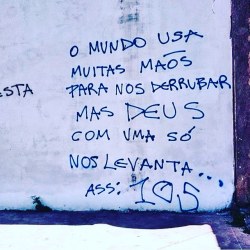 O MUNDO USA
MUITAS MÃOS
PARA NOS DERRUBAR
MAS DEUS
COM UMA SÓ
NOS LEVANTA...
ASS: 105
ESTA